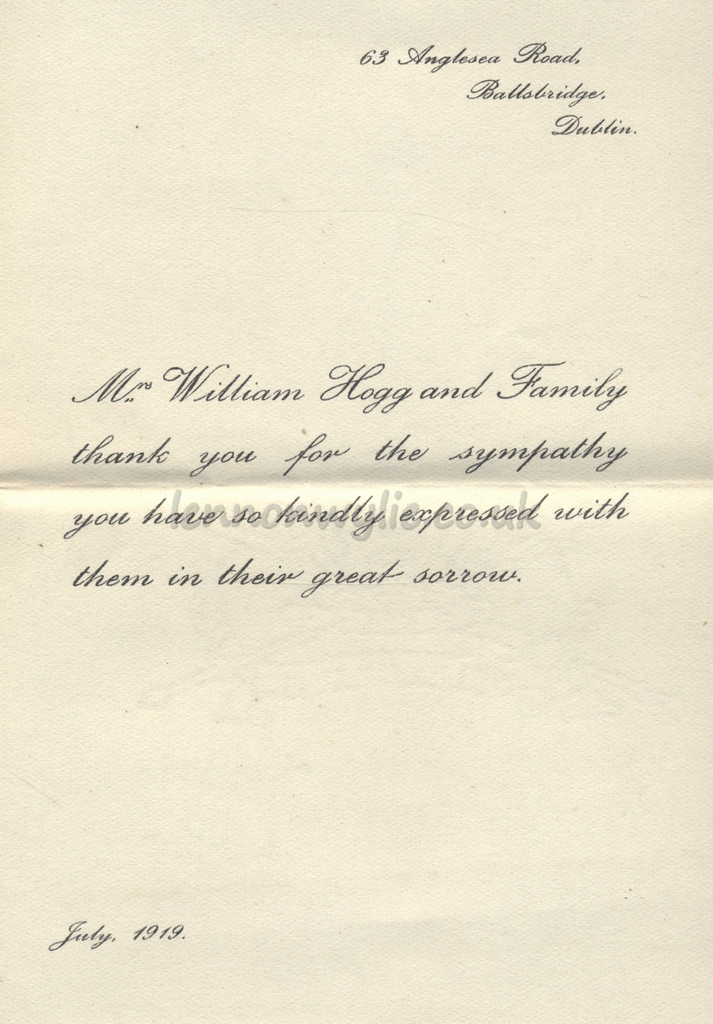 63 Anglesea Road,
Ballsbridge,
Dublin.
Mrs William Hogg and Family
thank you for the sympathy
you have so kindly expressed with
lennonwylie.co.uk
them in their great sorrow.
July, 1919.